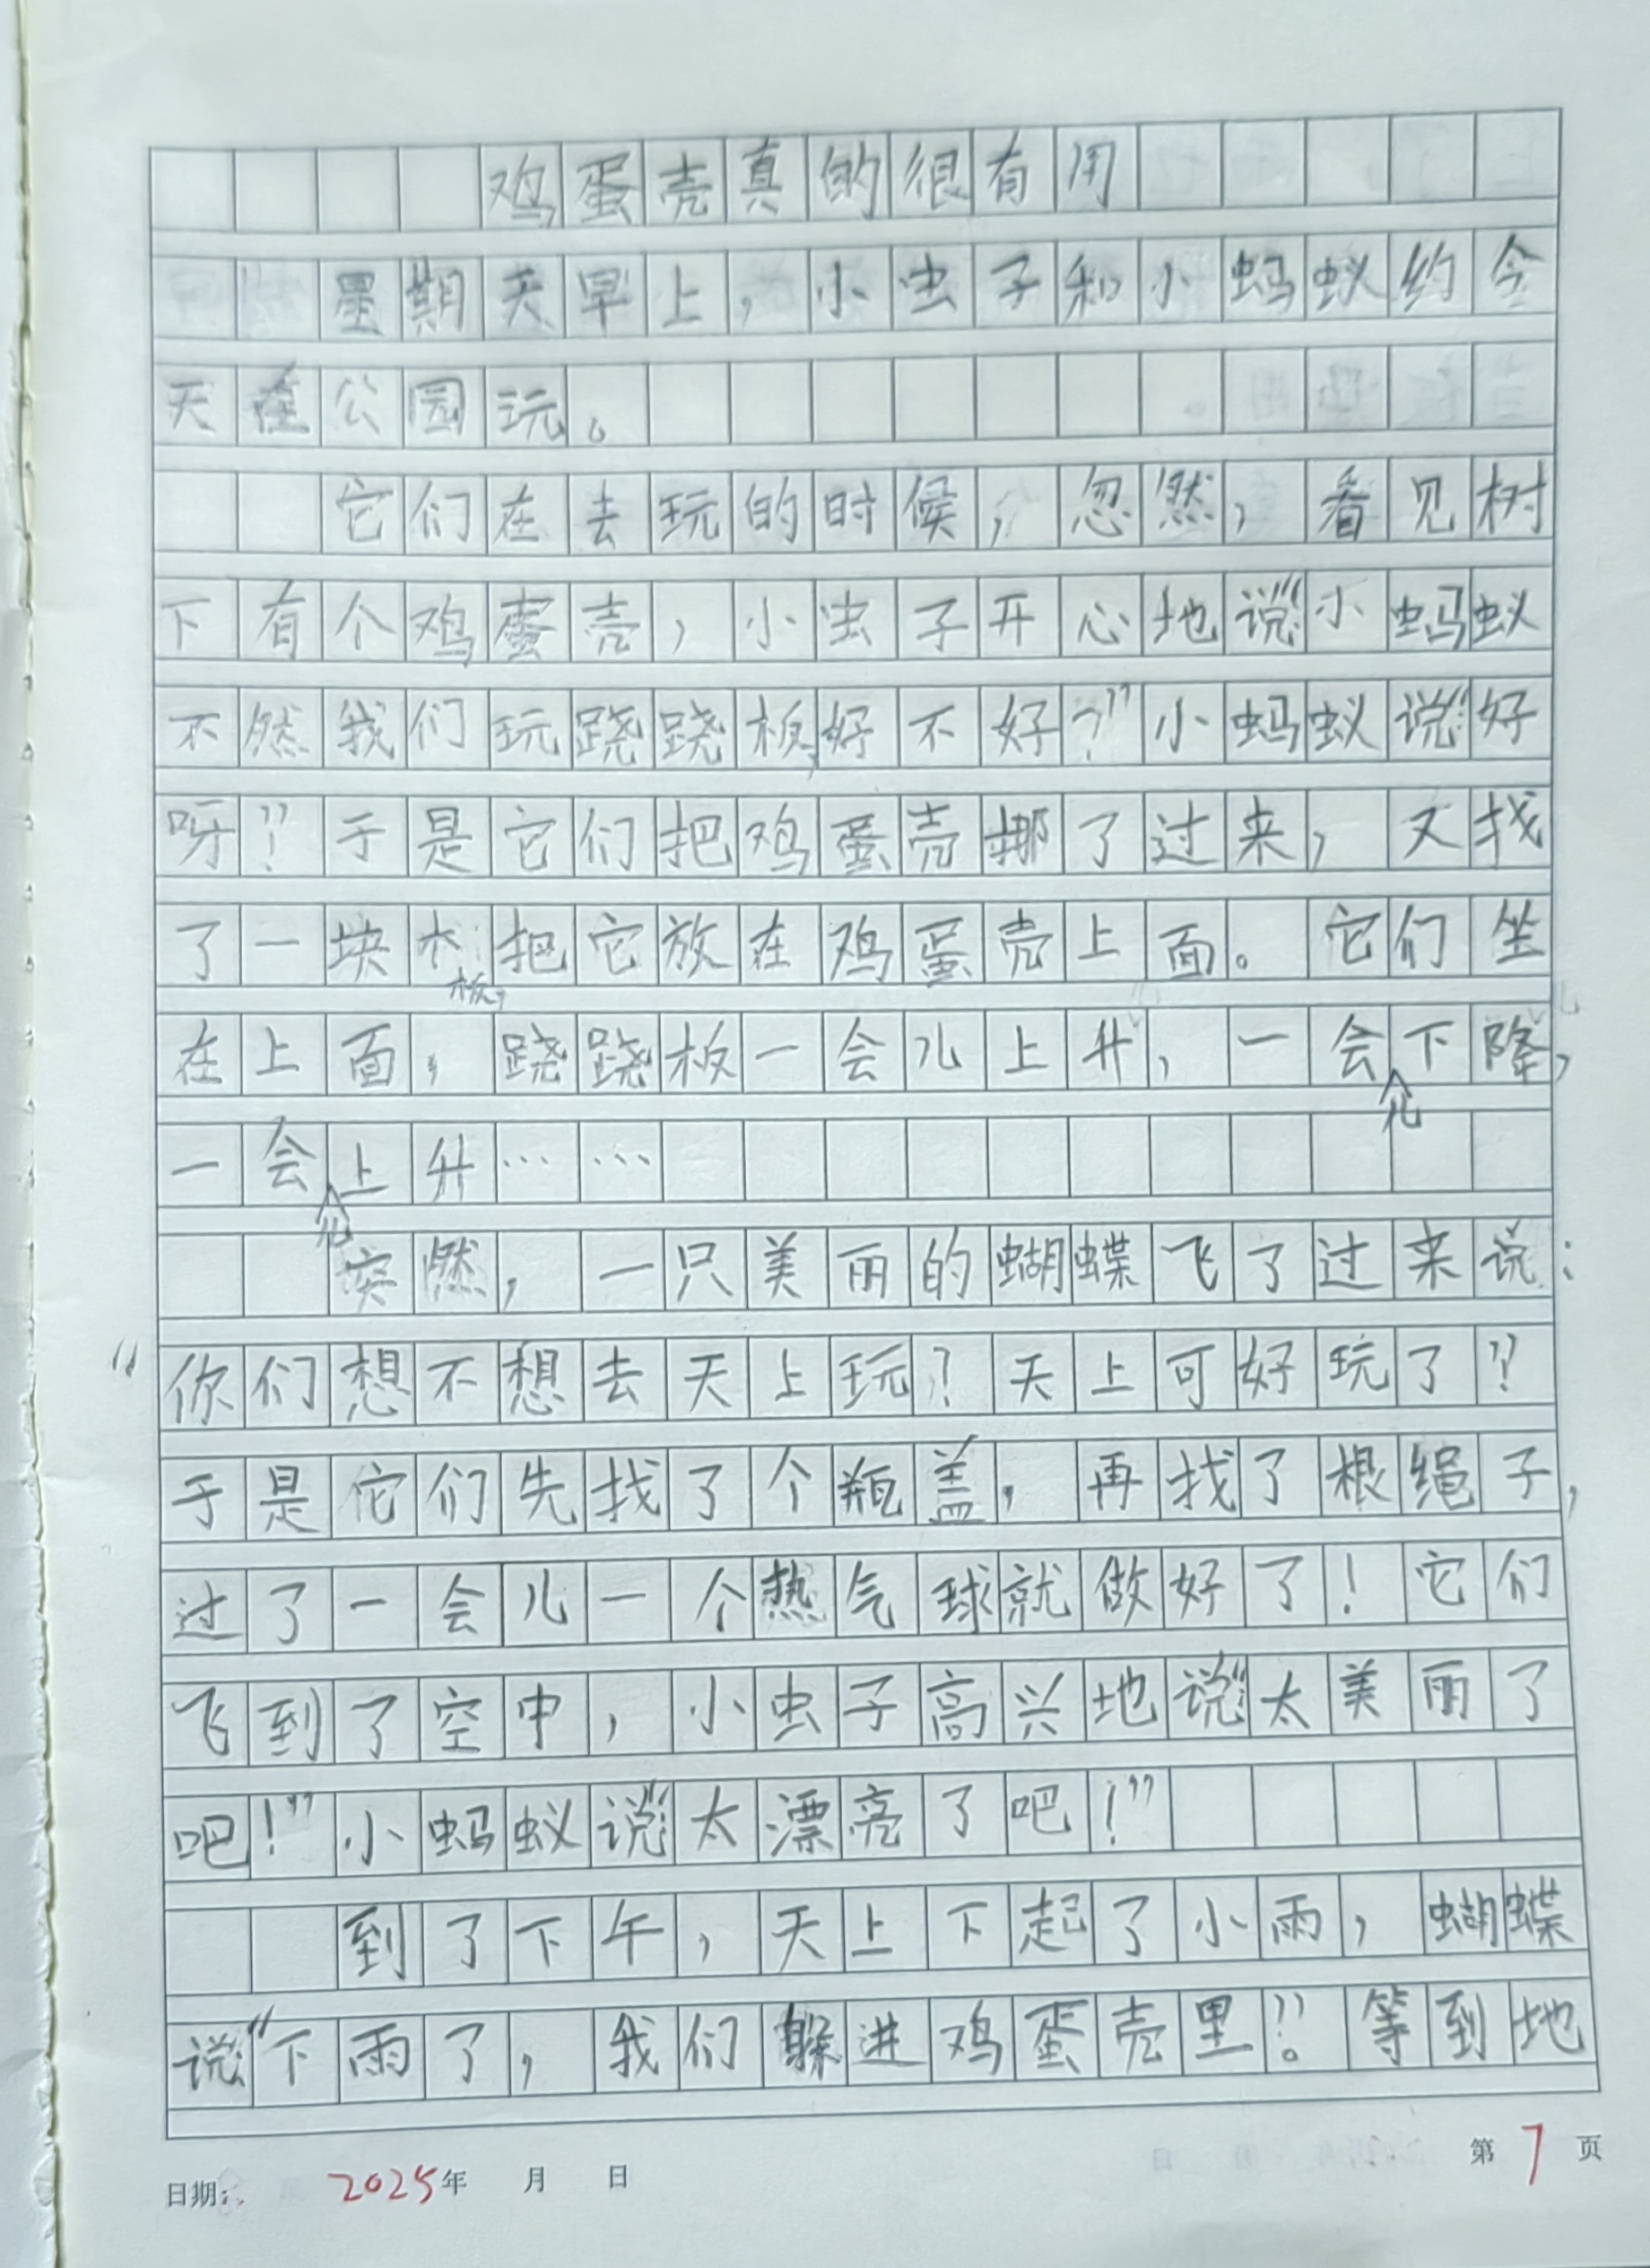 鸡蛋壳真的很有用
星期天早上，小虫子和小蚂蚁约今
天在公园玩。
它们在去玩的时候，忽然，看见树
下有个鸡蛋壳，小虫子开心地说：“小蚂蚁
不然我们玩跷跷板，好不好？”小蚂蚁说：“好
呀！”于是它们把鸡蛋壳挪了过来，又找
了一块木板，把它放在鸡蛋壳上面。它们坐
在上面，跷跷板一会儿上升，一会儿下降，
一会儿上升……
突然，一只美丽的蝴蝶飞了过来说：
“你们想不想去天上玩？天上可好玩了？”
于是它们先找了个瓶盖，再找了根绳子，
过了一会儿一个热气球就做好了！它们
飞到了空中，小虫子高兴地说：“太美丽了
吧！”小蚂蚁说：“太漂亮了吧！”
到了下午，天上下起了小雨，蝴蝶
说：“下雨了，我们躲进鸡蛋壳里。”等到地
日期：2025年 月 日 第7页